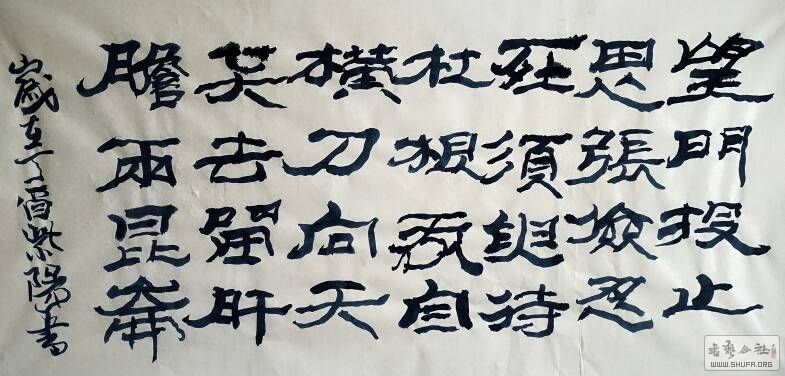 望門投止
思張儉忍
死須臾待
杜根我自
橫刀向天
笑去留肝
膽兩昆崙
歲在丁酉紫陽書
书艺公社
WWW.SHUFA.ORG